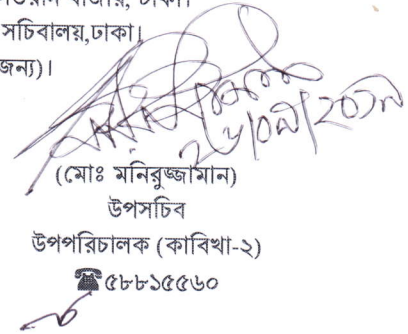 বাজার, ঢাকা।
সচিবালয়,ঢাকা।
জন্য)।
২৬/০৯/২০১৯
(মোঃ মনিরুজ্জামান)
উপসচিব
উপপরিচালক (কাবিখা-২)
☎৫৮৮১৫৫৬০